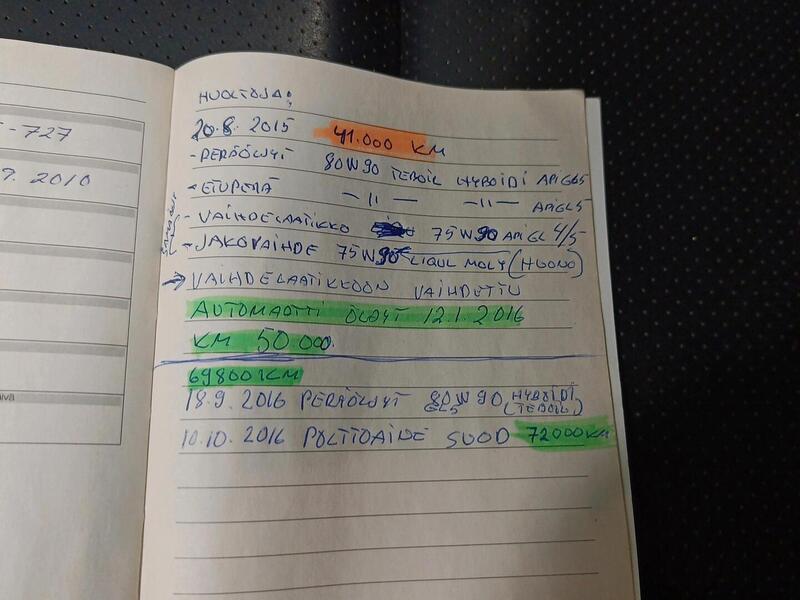 -727
9. 2010
HUOLTOJA:
20.8. 2015 41.000 KM
- PERÄÖLJYT 80W90 TEBOIL HYBOIDI API GL5
- ETUPERÄ - 11 - - 11 - API GL5
- VAIHDELAATIKKO 75W90 API GL 4/5
- JAKOVAIHDE 75W90 LIQUI MOLY (HUONO)
→ VAIHDELAATIKKOON VAIHDETTU
AUTOMAATTI ÖLJYT 12.1.2016
KM 50 000.
69800 KM
18.9. 2016 PERÄÖLJYT 80W90 HYBOIDI
GL5 (TEBOIL)
10.10. 2016 POLTTOAINE SUOD 72000KM